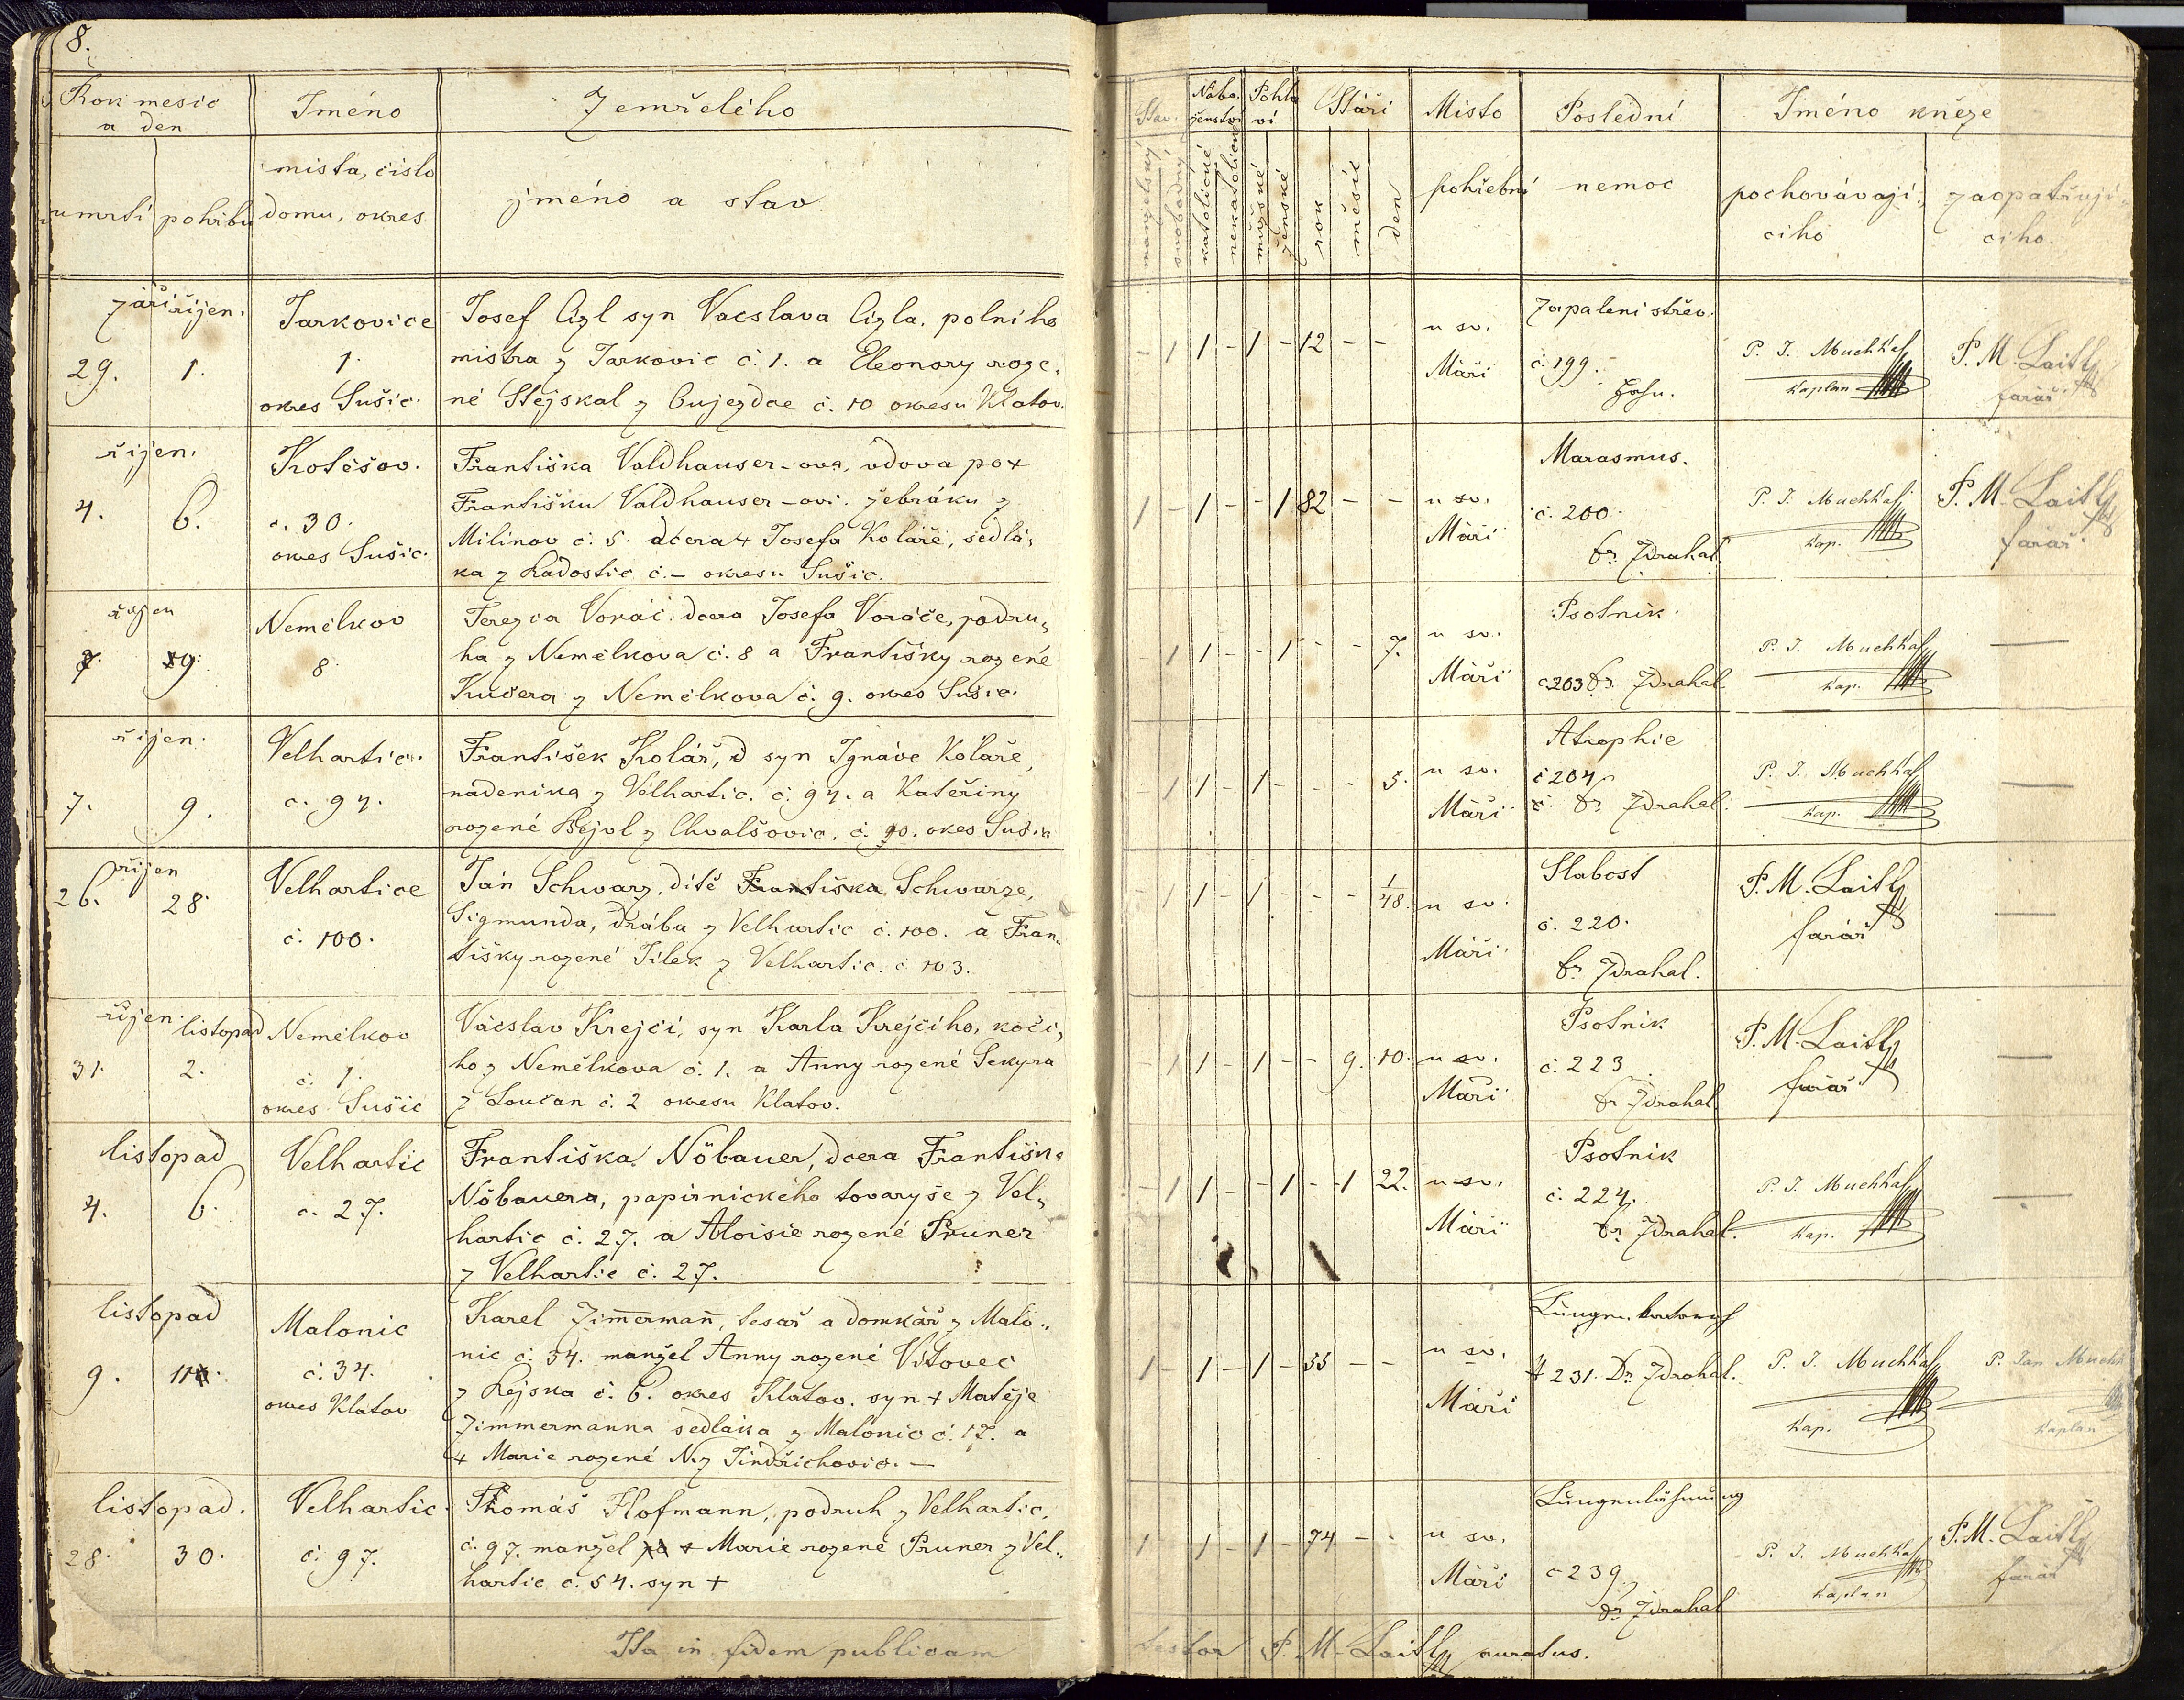 8.
Rok mesic
a den
Jméno
Zemřelého
umrtí
pohřbu
mista, číslo
domu, okres
jméno a stav.
září
říjen.
29.
1.
Jarkovice
1.
okres Sušic.
Josef Cizl syn Vacslava Cizla, polního
mistra z Jarkovic č. 1. a Eleonory roze,
né Stejskal z Čujezdce č. 10 okresu Klatov.
říjen.
4.
6.
Kotěšov.
č. 30.
okres Sušic.
Františka Valdhauser-ova, vdova po +
Františku Valdhauser-ovi. žebráku z
Milínov č. 5. dcera + Josefa Koláře, sedlá,
ka z Radostic č. – okresu Sušic.
říjen
7.
9.
Nemělkov
8.
Terezia Voráč. dcera Josefa Voráče, podru,
ha z Nemělkova č. 8 a Františky rozené
Kučera z Nemělkova č. 9. okres Sušic.
říjen.
7.
9.
Velhartic.
č. 94.
František Kolář, syn Ignáce Koláře,
nádeníka z Velhartic. č. 94. a Kateřiny
rozené Bejvl z Chvalšovic. č. 10. okes Sušic
říjen
26.
28.
Velhartice
č. 100.
Jan Schwarz, dítě Františka Schwarze,
Sigmunda, drába z Velhartic č. 100. a Fran,
tišky rozené Jílek z Velhartic. č 103.
říjen.
listopad
31.
2.
Nemělkov
č. 1.
okres Sušic
Vácslav Krejčí, syn Karla Krejčího, kočí,
ho z Nemělkova č. 1. a Anny rozené Sekyra
z Loučan č. 2 okresu Klatov.
listopad
4.
6.
Velhartic
č. 27.
Františka Nöbauer, dcera Františka
Nöbauera, papírnického tovaryše z Vel,
hartic č. 27. a Aloisie rozené Pruner
z Velhartic č. 27.
listopad
9.
11.
Malonic
č. 34.
okres Klatov
Karel Zim̄erman̄, tesař a domkář z Malo,,
nic č. 34. manžel Anny rozené Vítovec
z Rejska č. 6. okres Klatov. syn + Matěje
Zimmermanna sedláka z Malonic č. 17. a
+ Marie rozené N. z Jindřichovic. –
listopad.
28.
30.
Velhartic.
č. 97.
Thomáš Hofmann, podruh z Velhartic,
č. 97. manžel po + Marie rozené Pruner z Vel,,
hartic č. 54. syn +
Ita in fidem publicam
Stav.
Nábo,
ženství
Pohla
ví
Stáří
Místo
Poslední
Jméno kněze
manželský
svobodný
katolické
nekatolické
mužské
ženské
rok
měsíc
den
pohřební
nemoc
pochovávají,
cího
zaopatřují,
cího.
- 1 1 - 1 - 12 - -
u sv.
Máří
Zapalení střev.
č. 199.
P. J. Muchka
Kaplan
P. M. Laitl
farář
1 - 1 - - 1 82 - -
u sv.
Máří
Marasmus.
č. 200.
Dr. Zdrahal.
P. J. Muchka
Kap.
P. M. Laitl
farář
- 1 1 - - 1 - - 7.
u sv.
Máří
Psotník.
č. 203 Dr. Zdrahal.
P. J. Muchka
Kap.
—
- 1 1 - 1 - - - 5.
u sv.
Máří
Atrophie
č 204
Dr. Zdrahal.
P. J. Muchka
Kap.
—
- 1 1 - 1 - - - 1/48.
u sv.
Máří
Slabost
č. 220.
Dr. Zdrahal.
P. M. Laitl
farář
—
- 1 1 - 1 - - 9. 10.
u sv.
Máří
Psotník
č. 223
Dr Zdrahal.
P. M. Laitl
farář
—
- 1 1 - - 1 - 1 22.
u sv.
Máří
Psotník
č. 224.
Dr. Zdrahal.
P. J. Muchka
Kap.
—
1 - 1 - 1 - 55 - -
u sv.
Máří
231. Dr. Zdrahal.
P. J. Muchka
Kap.
P. Jan Muchk
Kaplan
1 1 - 1 - 74 - -
u sv.
Máří
Lungenlähmung
č 239
Dr Zdrahal
P. J. Muchka
Kaplan
P. M. Laitl
farář
testor P. M. Laitl curatus.